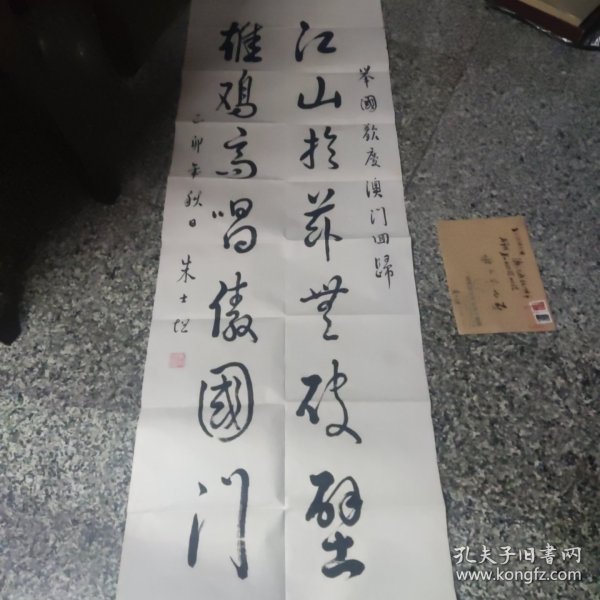 举國歡度澳门回歸
江山於兹無破壁
雄鸡高唱傲國门
己卯年秋日
朱士
孔夫子旧书网
www.kongfz.com